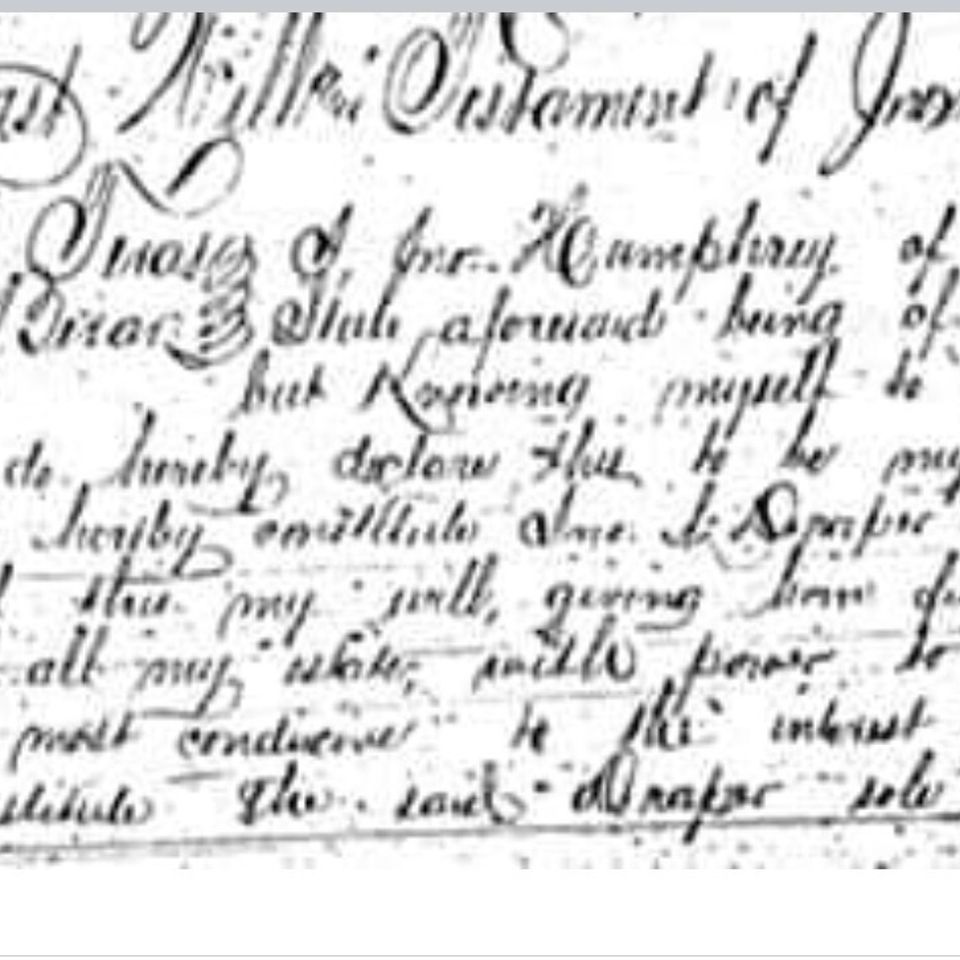 ast Will & Testament of Jno
Texas I, Jno. Humphrey of
Bexar State aforesaid being of
but Knowing myself to
do hereby declare this to be my
heryby constitute Jno. Draper
this my will, giving him
all my estate, with power to
most conducive to the interest
stitute the said Draper sole